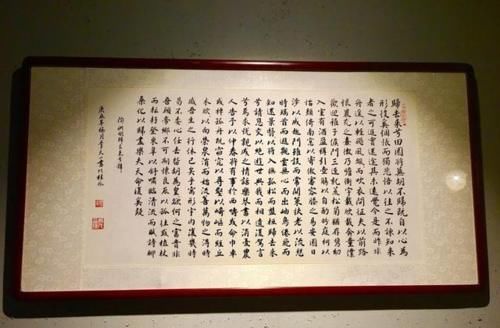 歸去來兮田園將蕪胡不歸既自以心為
形役奚惆悵而獨悲悟以往之不諫知來
者之可追實迷途其未遠覺今是而昨非
舟遙以輕颺風飄而吹衣問征夫以前路
恨晨光之熹微乃瞻衡宇載欣載奔僮僕
歡迎稚子候門三徑就荒松菊猶存攜幼
入室有酒盈樽引壺觴以自酌眄庭柯以
怡顏倚南窗以寄傲審容膝之易安園日
涉以成趣門雖設而常關策扶老以流憩
時矯首而遐觀雲無心而出岫鳥倦飛而
知還景翳以將入撫孤松而盤桓歸去來
兮請息交以絕遊世與我而相違復駕言
兮焉求悅親戚之情話樂琴書以消憂農
人告予以仲春將有事於西疇或命巾車
或棹孤舟既窈窕以尋壑亦崎嶇而經丘
木欣以向榮泉涓而始流善萬物之得時
感吾生之行休已矣乎寓形宇內復幾時
曷不委心任去留胡為遑欲何之富貴非
吾願帝鄉不可期懷良辰以孤往或植杖
而耘耔登東皋以舒嘯臨清流而賦詩聊
乘化以歸盡樂夫天命復奚疑
陶淵明歸去來兮辭
年 月李 書於桂林